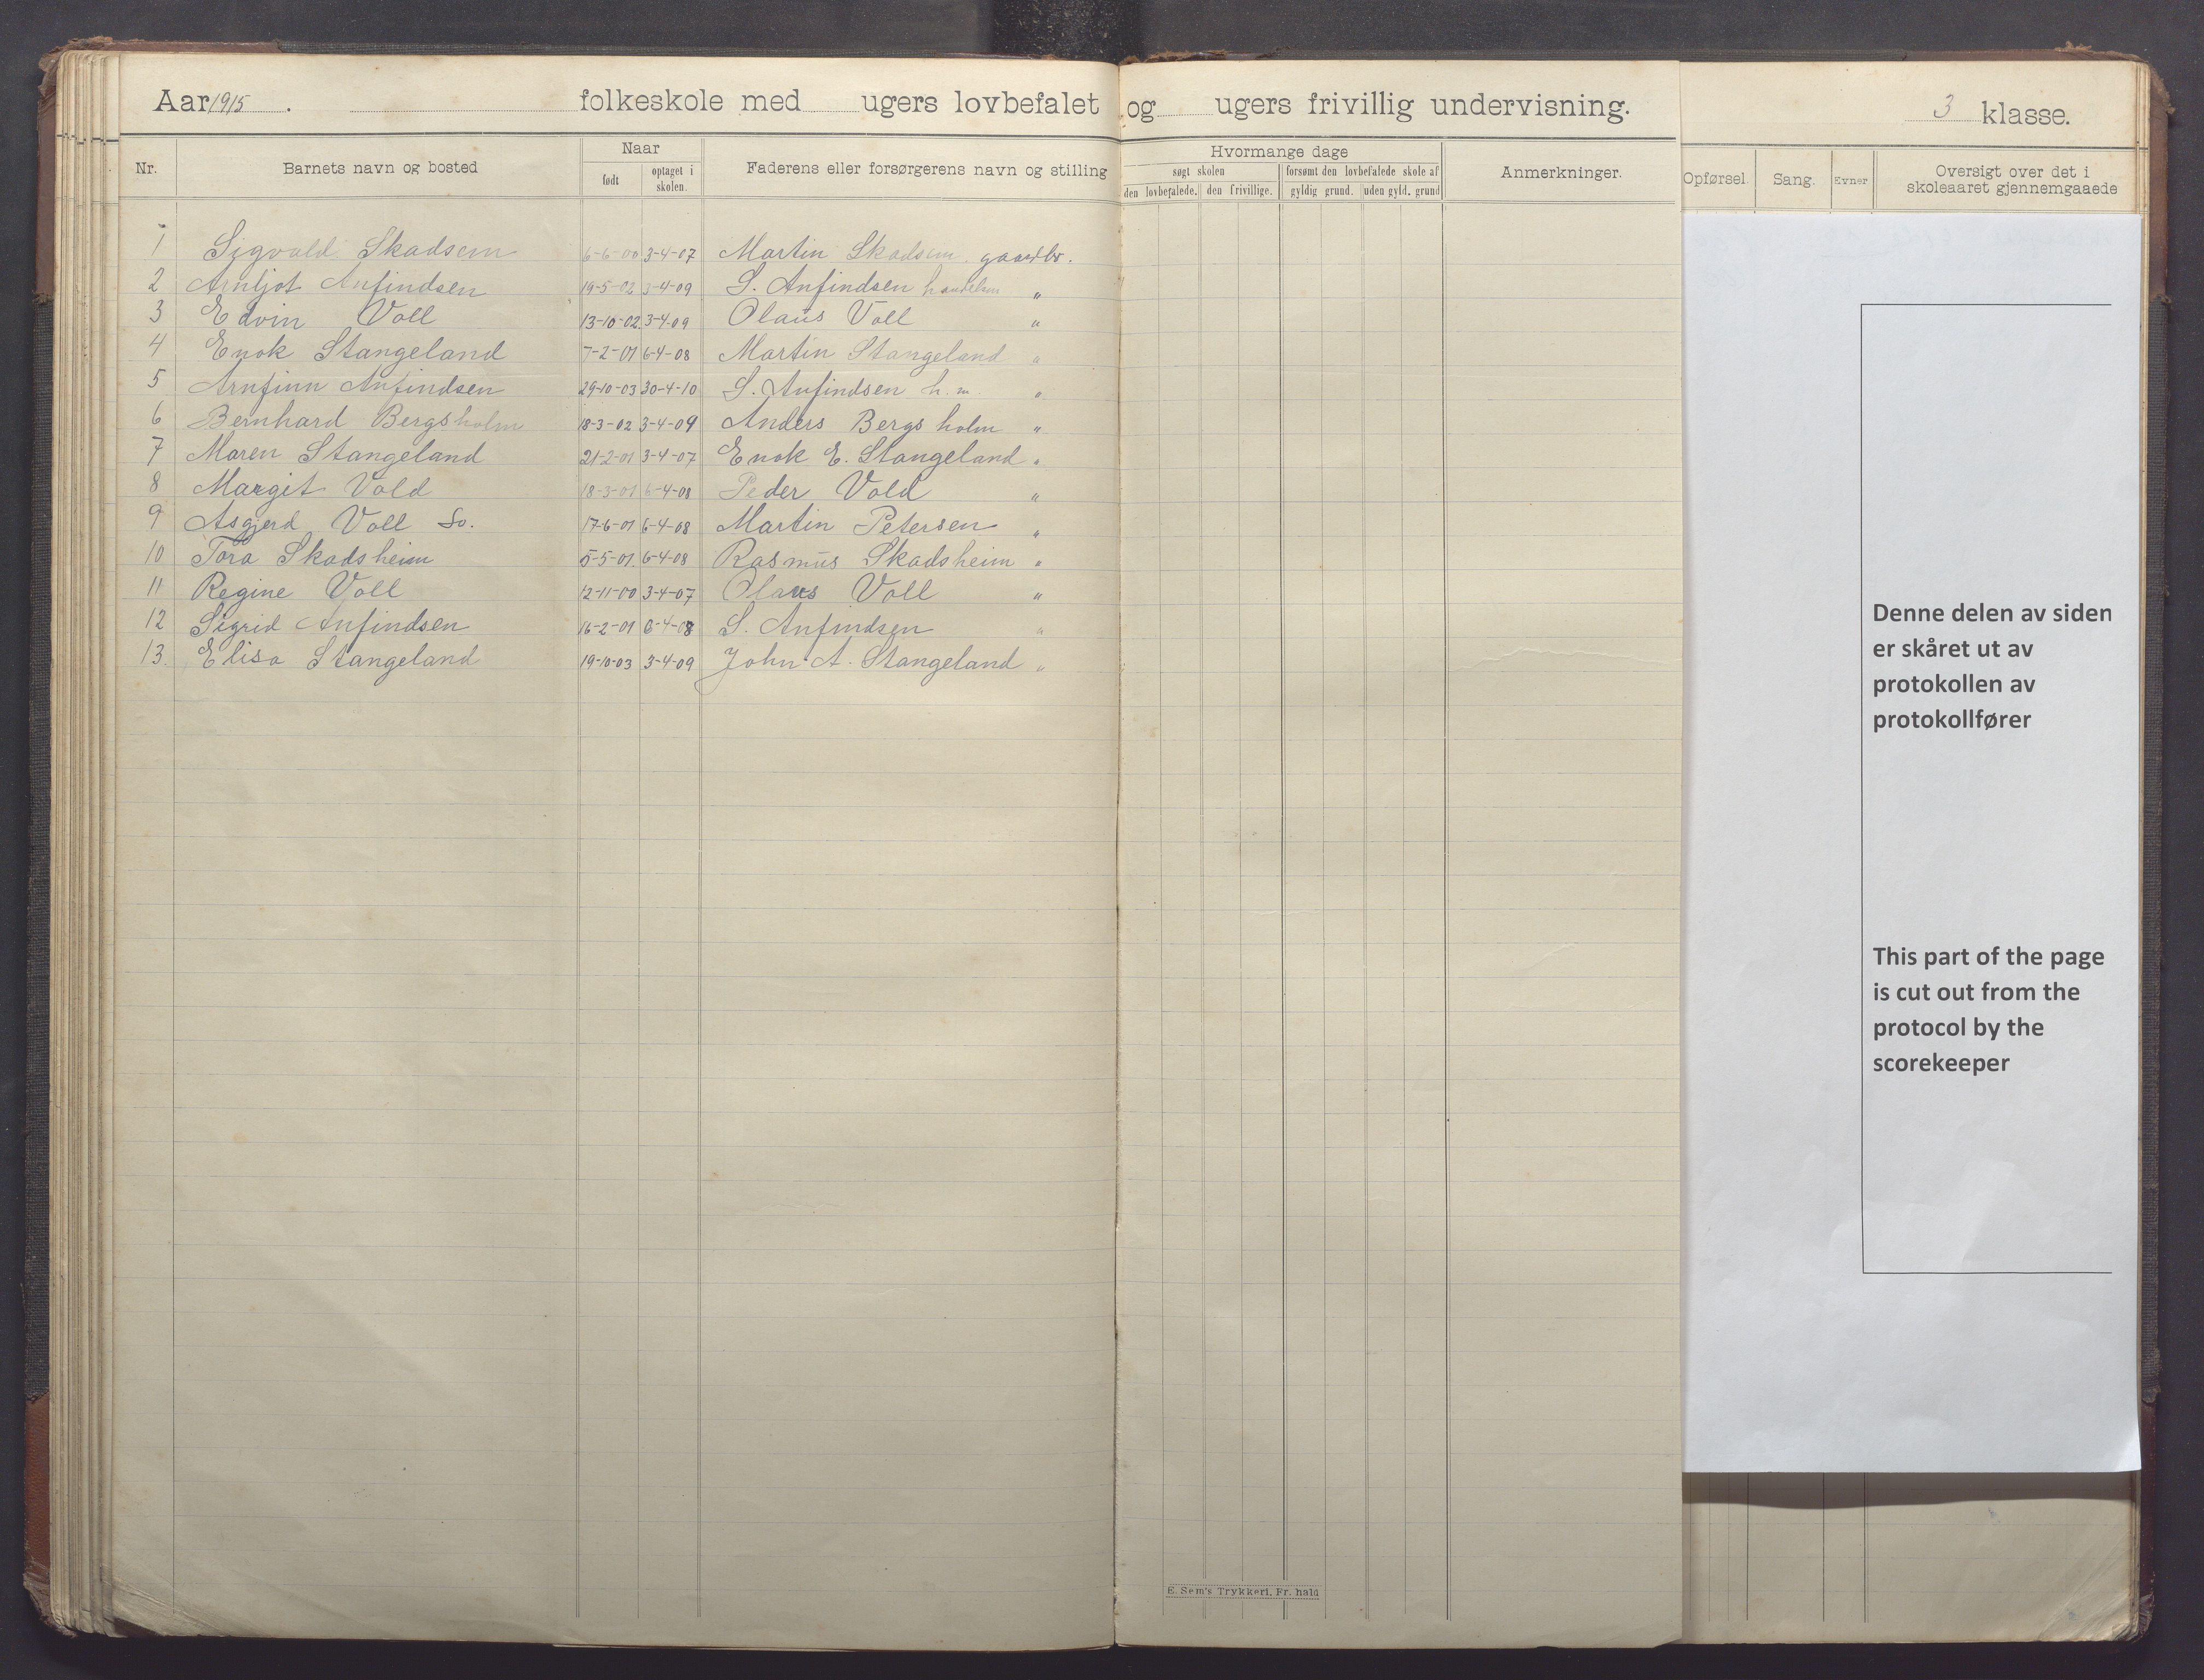 Aar 1915. folkeskole med ugers lovbefalet og ugers frivillig undervisning. 3 klasse.
Nr. Barnets navn og bosted Naar født optaget i skolen. Faderens eller forsørgerens navn og stilling Hvormange dage søgt skolen den lovbefalede. den frivillige. forsømt den lovbefalede skole af gyldig grund. uden gyld. grund Anmerkninger. Opførsel. Sang. Evner Oversigt over det i skoleaaret gjennemgaaede
1 Sigvald Skadsem 6-6-00 3-4-07 Martin Skadsem gaardbr.
2 Arnljot Anfindsen 19-5-02 3-4-09 S. Anfindsen handelsm "
3 Edvin Voll 13-10-02 3-4-09 Olaus Voll "
4 Enok Stangeland 7-2-01 6-4-08 Martin Stangeland "
5 Arnfinn Anfindsen 29-10-03 30-4-10 S. Anfindsen h.m. "
6 Bernhard Bergsholm 18-3-02 3-4-09 Anders Bergsholm "
7 Maren Stangeland 21-2-01 3-4-07 Enok E. Stangeland "
8 Margit Vold 18-3-01 6-4-08 Peder Vold "
9 Asgjerd Voll So. 17-6-01 6-4-08 Martin Petersen "
10 Tora Skadsheim 5-5-01 6-4-08 Rasmus Skadsheim "
11 Regine Voll 12-11-00 3-4-07 Olaus Voll "
12 Sigrid Anfindsen 16-2-01 6-4-08 S. Anfindsen "
13. Elisa Stangeland 19-10-03 3-4-09 John A. Stangeland "
Denne delen av siden
er skåret ut av
protokollen av
protokollfører
This part of the page
is cut out from the
protocol by the
scorekeeper
E. Sem's Trykkeri, Fr. hald